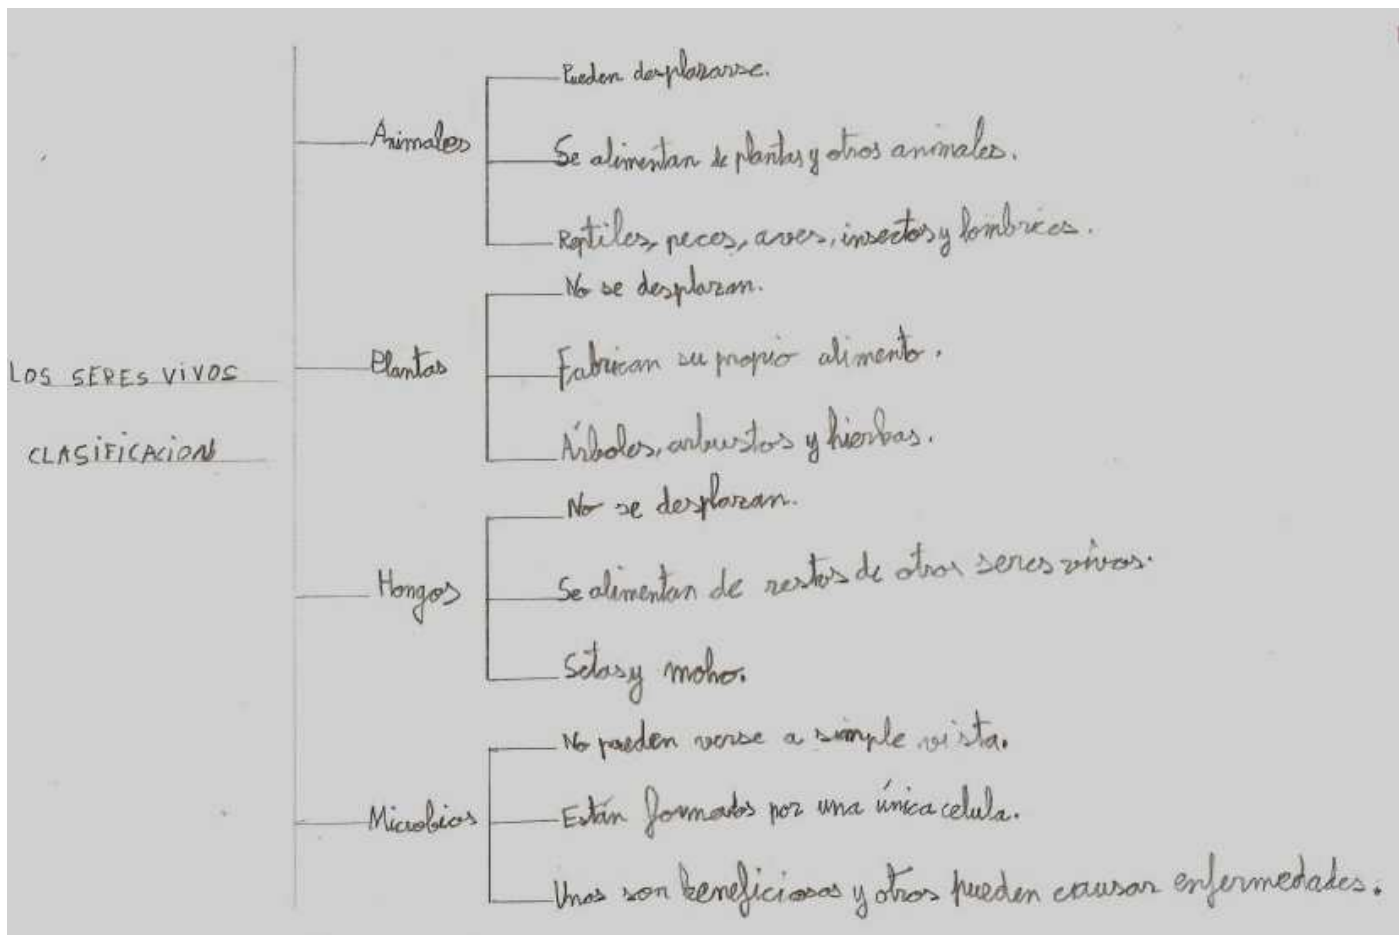 LOS SERES VIVOS
CLASIFICACION
Animales
Pueden desplazarse.
Se alimentan de plantas y otros animales.
Reptiles, peces, aves, insectos y lombrices.
Plantas
No se desplazan.
Fabrican su propio alimento.
Árboles, arbustos y hierbas.
Hongos
No se desplazan.
Se alimentan de restos de otros seres vivos.
Setas y moho.
Microbios
No pueden verse a simple vista.
Están formados por una única celula.
Unos son beneficiosos y otros pueden causar enfermedades.